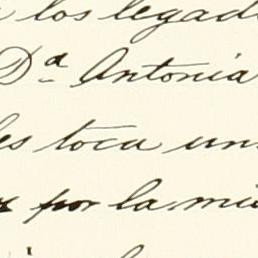 los legad
Dª Antonia
les toca un
por la mi